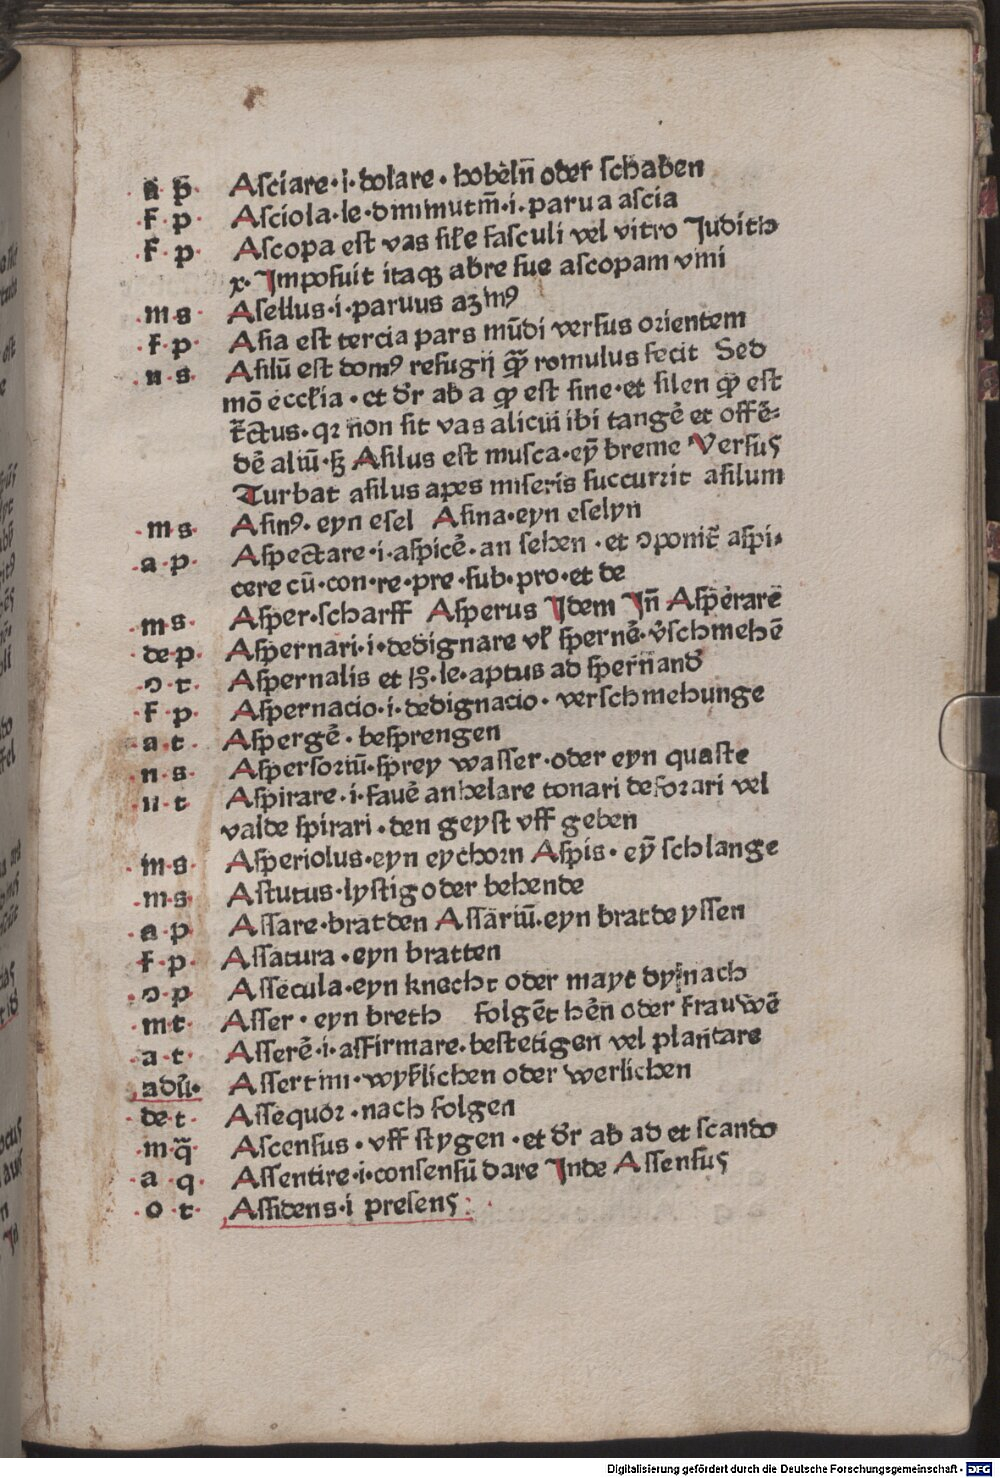 a p Aſciare·i·dolare·hobeln̄ oder ſchaben
f·p· Aſciola·le·diminutiū·i·parua aſcia
f p· Aſcopa eſt vas ſile faſculi vel vitro Judith
x·Impoſuit itaqꝫ abre ſue aſcopam vini
·m·s Aſellus·i·paruus aꝫinꝰ
·f·p Aſia eſt tercia pars mūdi verſus orientem
·n·s Aſilū eſt domꝰ refugij qp̄ romulus fecit Sed
mō eccl̓ia·et dr̄ ab a qp̄ eſt ſine·et ſilen qp̄ eſt
tc̄tus·qꝛ non ſit vas alicui ibi tangē et offē⸗
dē aliū·ſꝫ Aſilus eſt muſca·eyn̄ breme Verſus
Turbat aſilus apes miſeris ſuccurrit aſilum
·m·s· Aſinꝰ·eyn eſel Aſina·eyn eſelyn
·a·p· Aſpectare·i·aſpicē·an ſehen·et ꝯponit̄ aſpi⸗
cere cū·con·re·pre·ſub·pro·et de
m·s· Aſper·ſcharff Aſperus Idem In̄ Aſperare
de·p· Aſpernari·i·dedignare vl̓ ſpernē·v̓ſchmehē
·ꝯ·t· Aſpernalis et hꝫ·le·aptus ad ſpernand̓
·f·p· Aſpernacio·i·dedignacio·verſchmehunge
·a·t· Aſpergē·beſprengen
·n·s· Aſperſoriū·ſprey waſſer·oder eyn quaſte
·n·t Aſpirare·i·fauē anhelare conari deſorari vel
valde ſpirari·den geyſt vff geben
·m·s· Aſperiolus·eyn eychorn Aſpis·ey̅ ſchlange
·m·s· Aſtutus·lyſtig oder behende
·a·p· Aſſare·bratden Aſſariū·eyn bratde yſſen
·f·p· Aſſatura·eyn bratten
·ꝯ·p Aſſecula·eyn knecht oder mayt dy nach
·m·t· Aſſer·eyn breth folgēt hēn oder frauwē
·a·t· Aſſerē·i·affirmare·beſtetigen vel plantare
·adū· Aſſertim·wyrlichen oder werlichen
·de·t· Aſſequor·nach folgen
·m·q̄· Aſcenſus·vff ſtygen·et dr̄ ab ad et ſcando
·a q· Aſſentire·i·conſenſū dare Inde Aſſenſus
·o·t· Aſſidens·i preſens
Digitalisierung gefördert durch die Deutsche Forschungsgemeinschaft - DFG